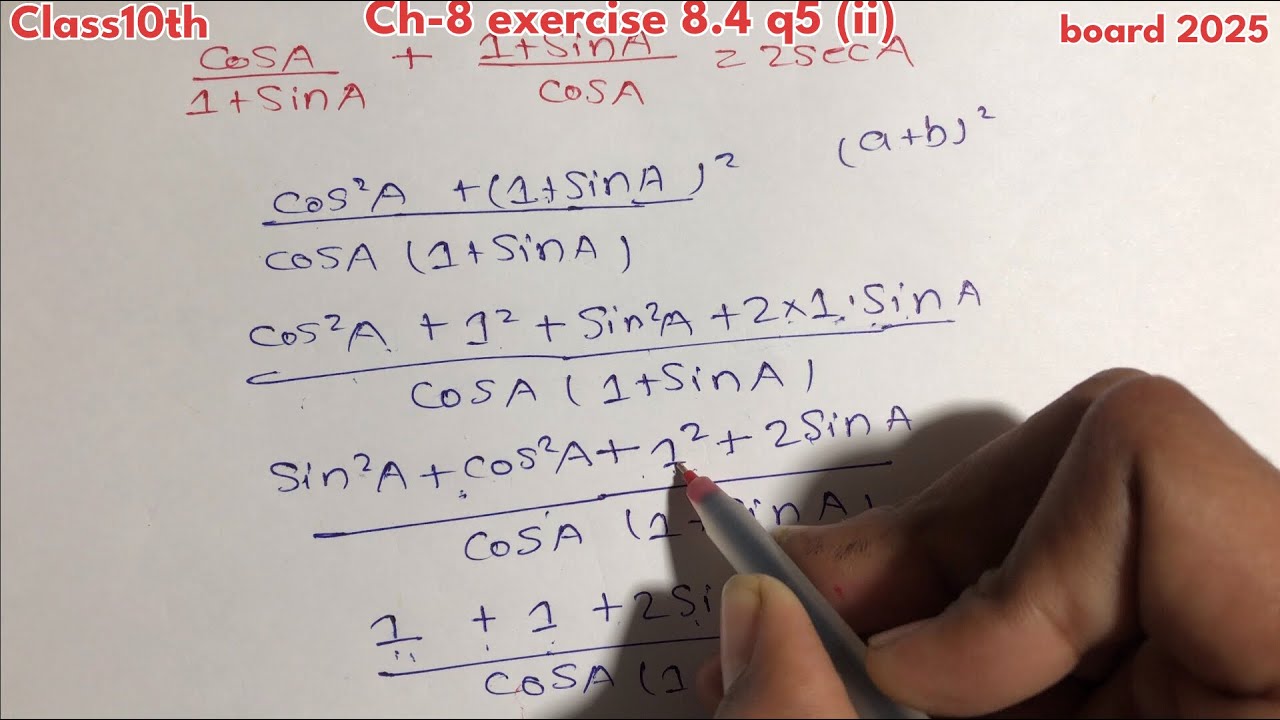 Class10th Ch-8 exercise 8.4 q5 (ii) board 2025
cosA/1+SinA + 1+SinA/cosA = 2secA
(a+b)²
cos²A + (1+SinA)²
cosA (1+SinA)
cos²A + 1² + Sin²A + 2×1·SinA
cosA (1+SinA)
Sin²A + cos²A + 1² + 2SinA
cosA (1+SinA)
1 + 1 + 2Si
cosA (1